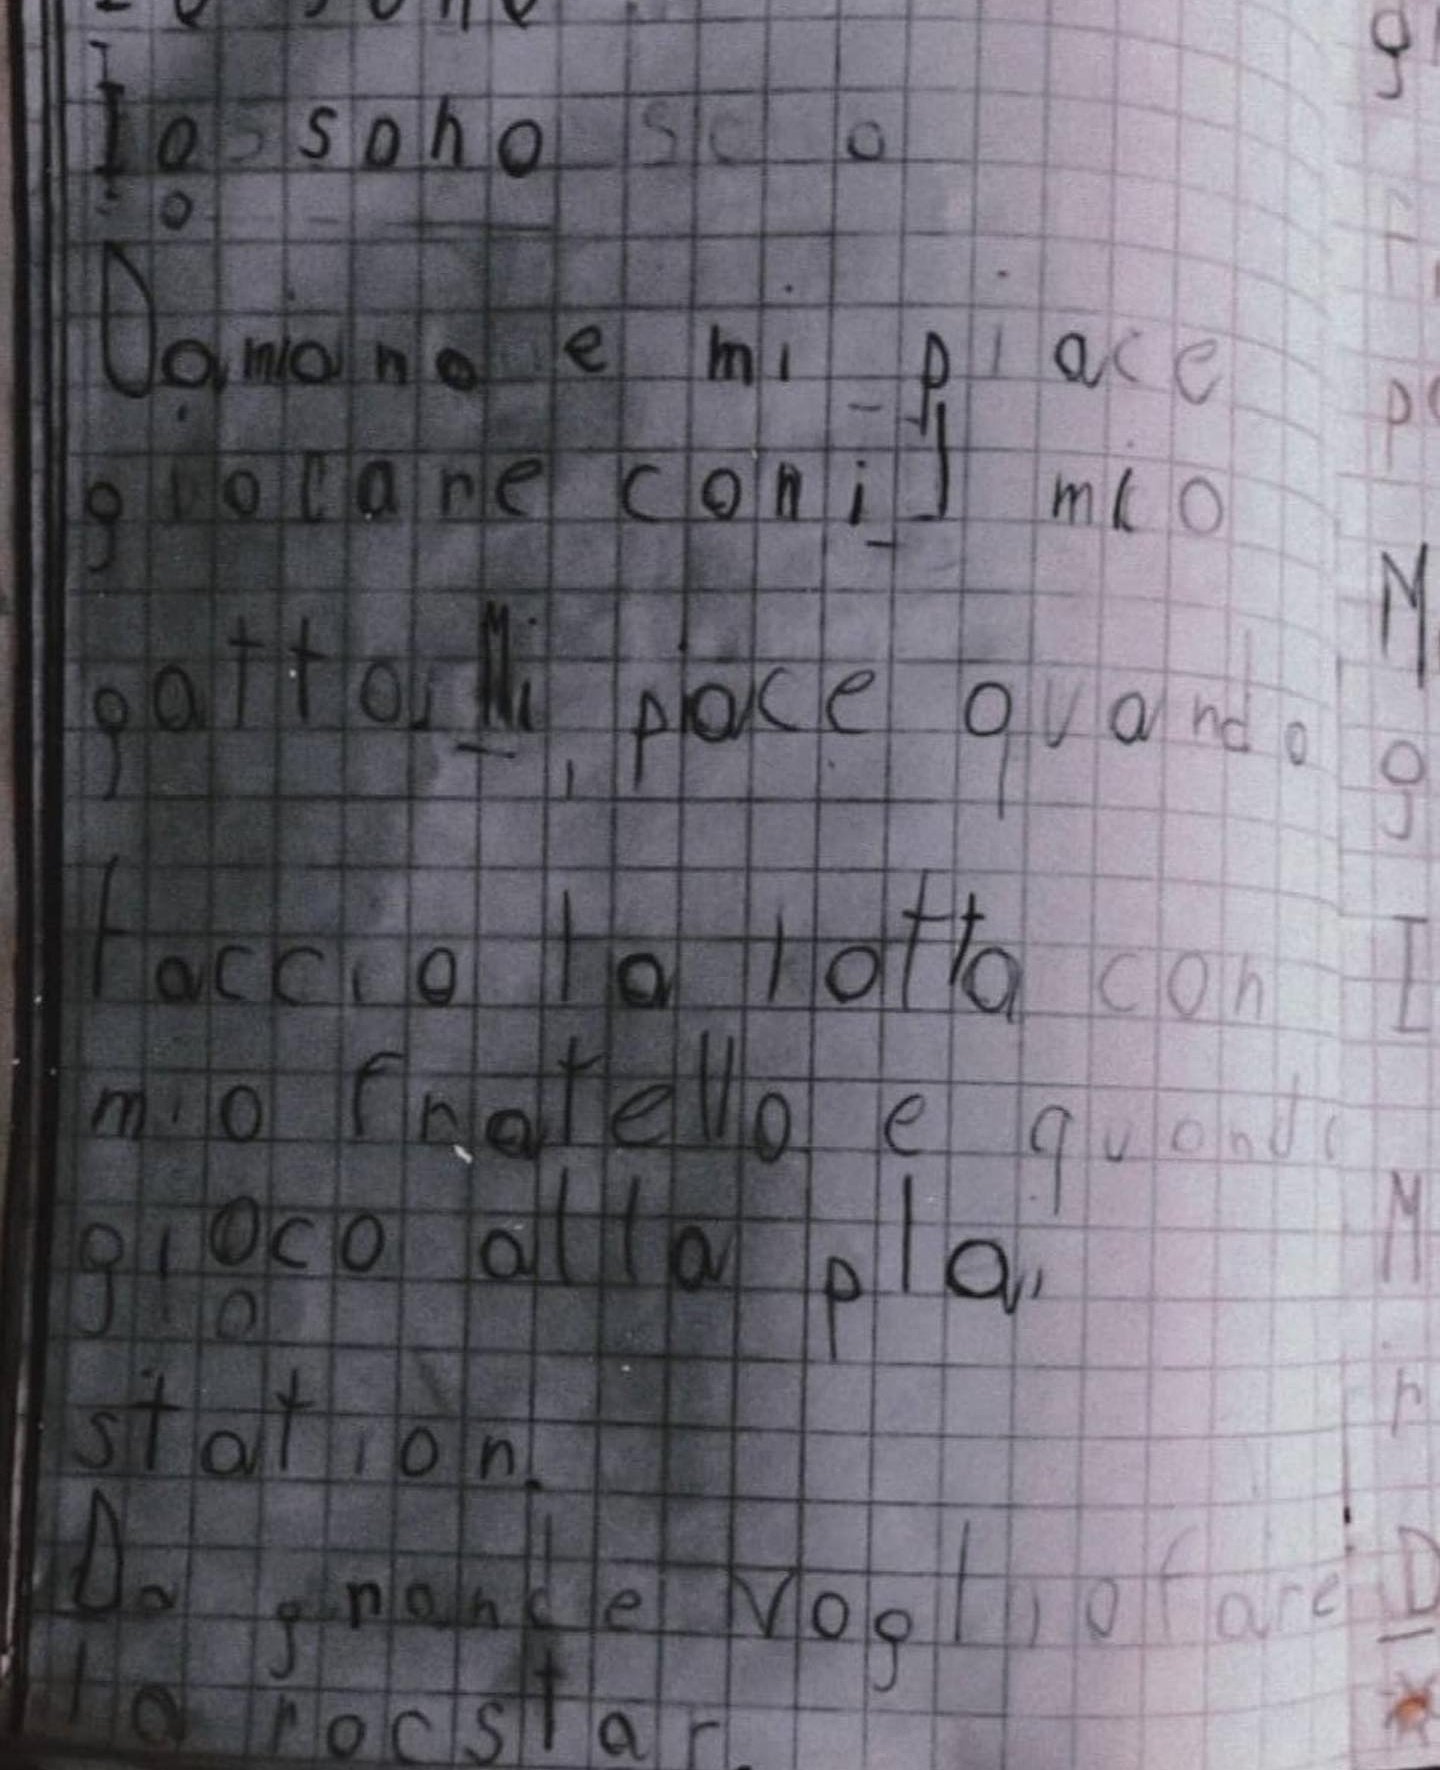 Io sono
Damiano e mi piace
giocare con il mio
gatto. Mi piace quando
faccio la lotta con
mio fratello e quando
gioco alla pla,
station.
Da grande voglio fare
la rocstar.